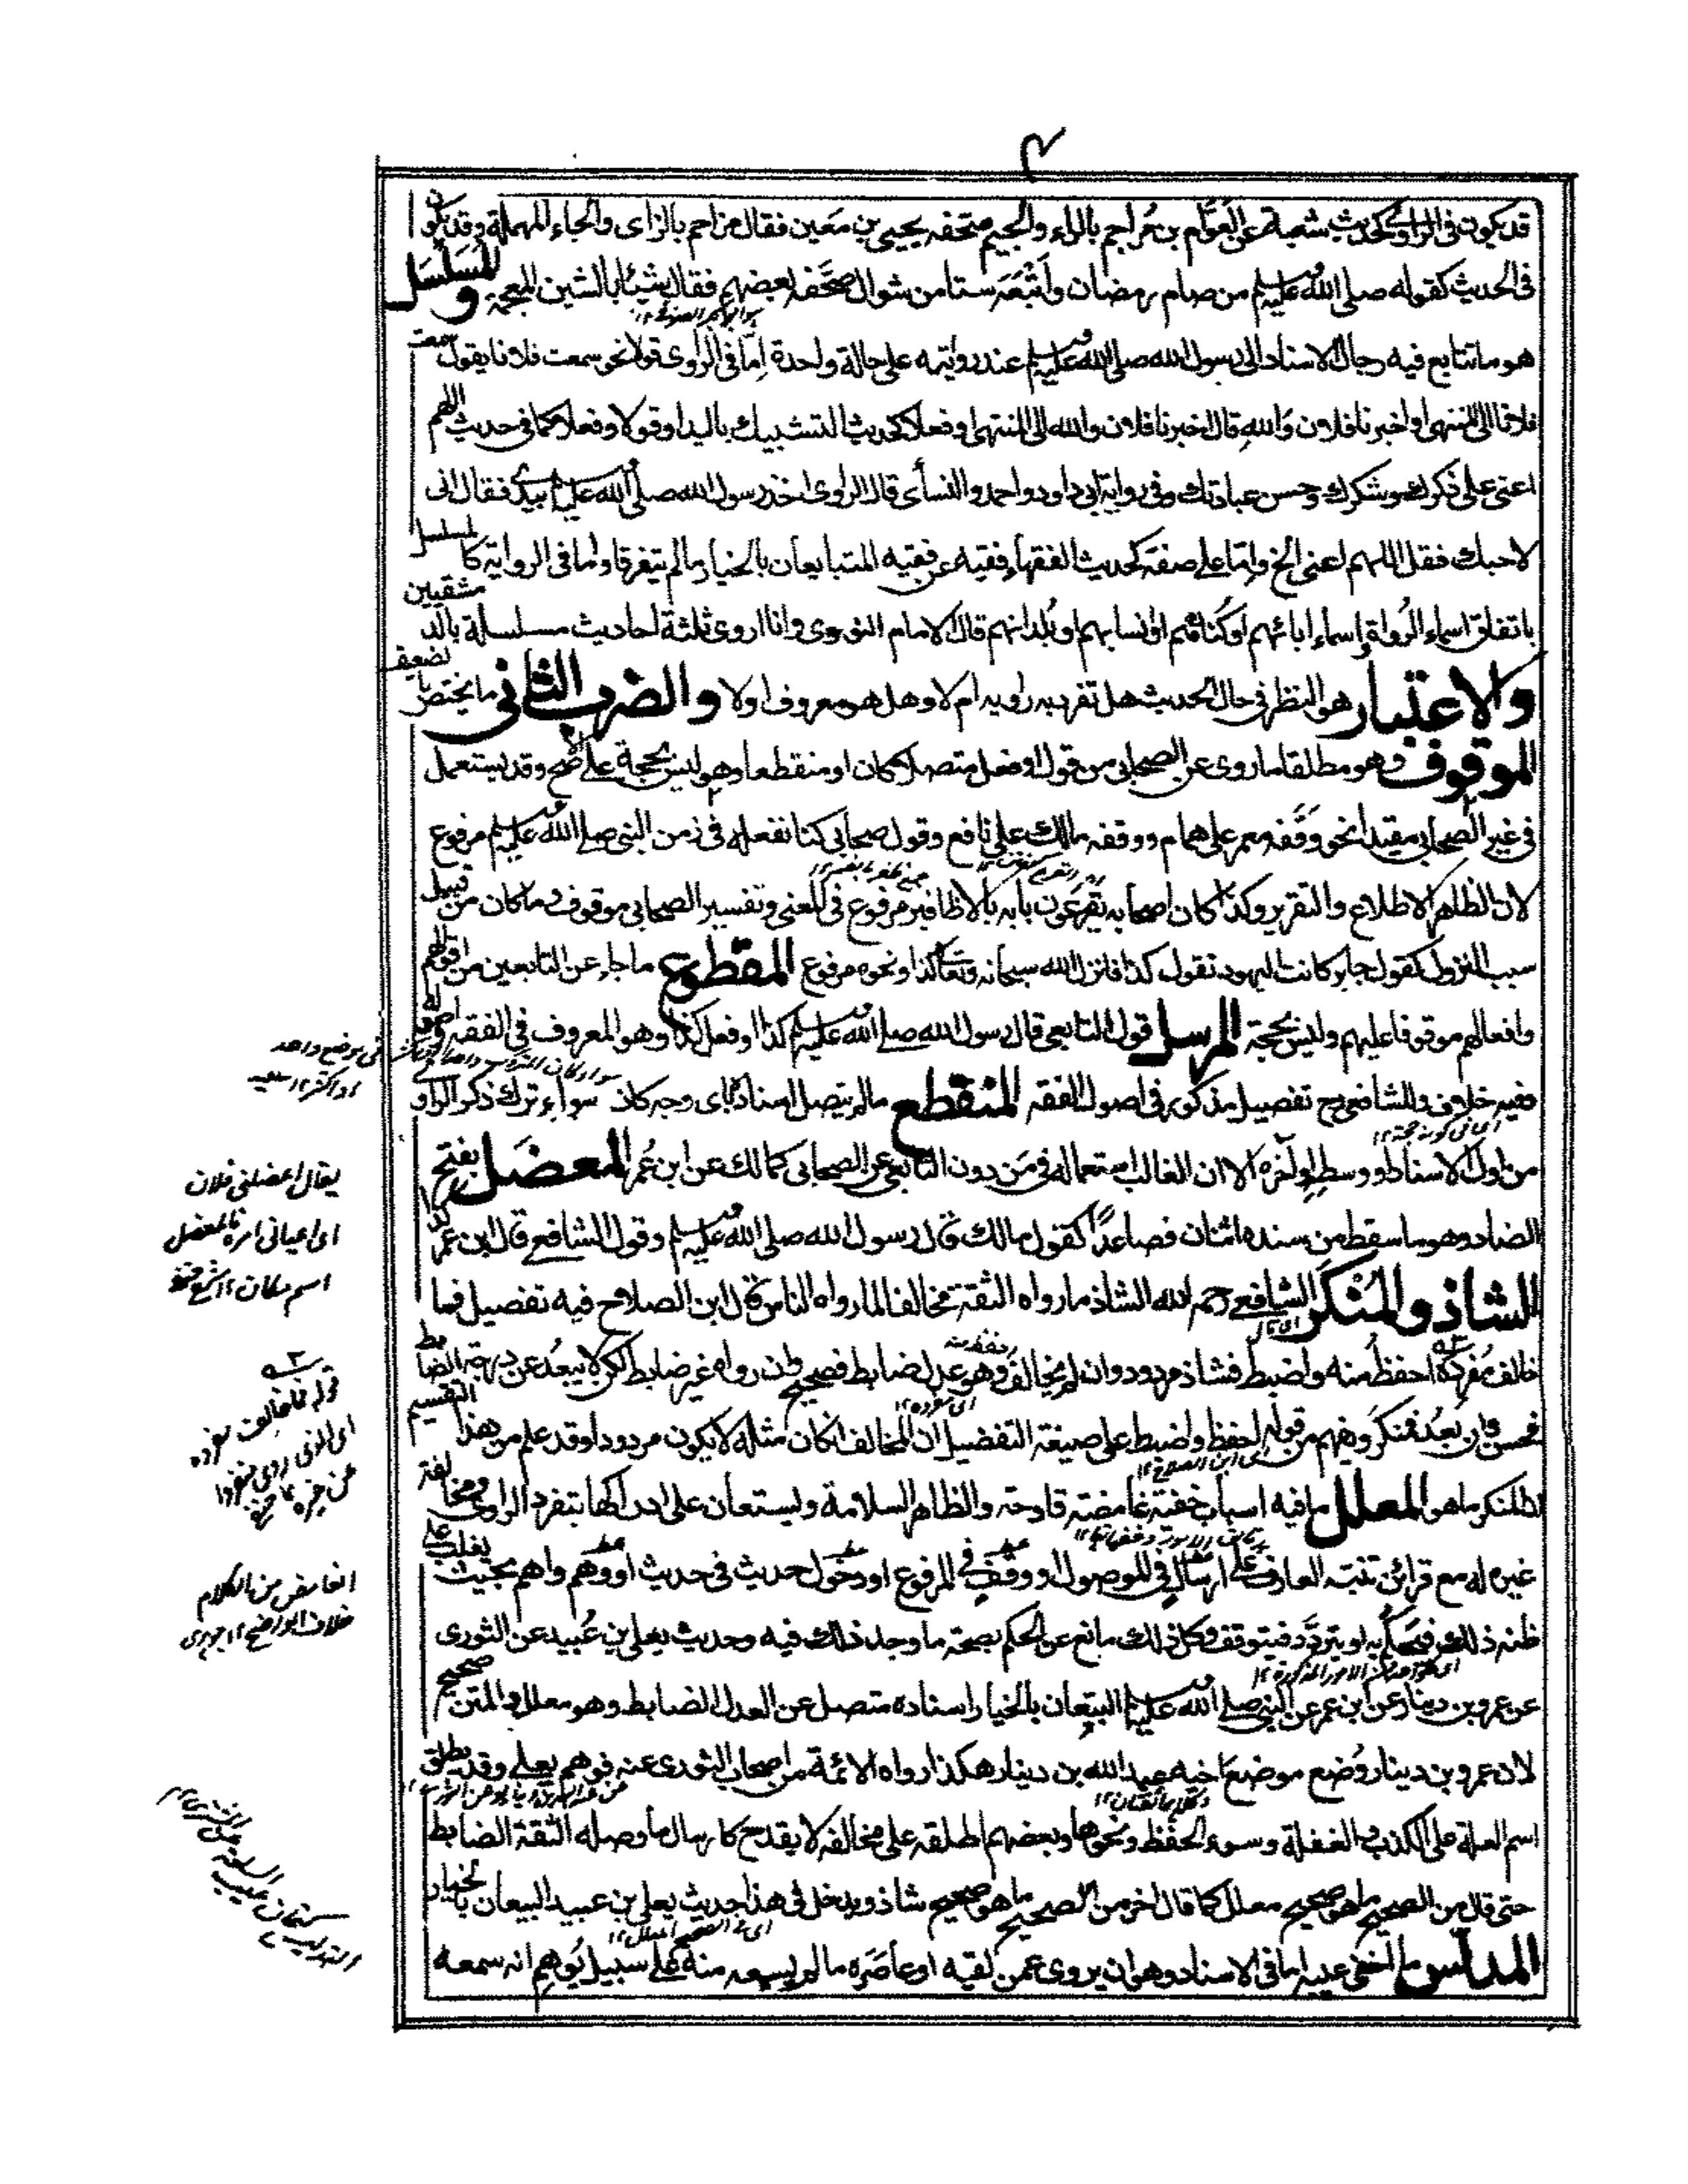 ۴
قد يكون في الراوي كحديث شعبة عن العوّام بن مُراجم بالراء والجيم صحّفه يحيى بن مَعين فقال مزاحم بالزاى والحاء المهملة وقد يكون
في الحديث كقوله صلى الله عليه وسلم من صام رمضان وأتْبَعَه ستا من شوال صحَّفه بعضهم فقال شيئا بالشين المعجمة والمسَلسَل
هو ما تتابع فيه رجال الاسناد الى رسول الله صلى الله عليه وسلم عند روايته على حالة واحدة إمّا في الراوى قولا نحو سمعت فلانا يقول سمعت
فلانا الى المنتهى او اخبرنا فلان وَاللهِ قال اخبرنا فلان والله الى المنتهى او فعلا كحديث التشبيك باليد او قولا وفعلا كما في حديث اللهم
اعنى على ذكرك وشكرك وحسن عبادتك وفي رواية ابى داود واحمد والنسأى قال الراوى اخذ رسول الله صلى الله عليه وسلم بيدى فقال انى
لاحبك فقل اللهم اعنى الخ وامّا على صفة كحديث الفقهاء فقيه عن فقيه المتبايعان بالخيار ما لم يتفرقا واما في الرواية كالمسلسل
باتفاق اسماء الرُواة واسماء ابائهم او كُناهم او انسابهم او بُلدانهم قال الامام النووى وانا اروى ثلثة احاديث مسلسلة بالدمشقيين
والاعتبار هو النظر في حال الحديث هل تفرد به راويه ام لا وهل هو معروف او لا والضرب الثانى ما يختص بالضعيف
الموقوف وهو مطلقا ما روى عن الصحابى من قول او فعل متصلا كان او منقطعا وهو ليس بحجة على الاصح وقد يستعمل
في غير الصحابى مقيدا نحو وَقَفَه معمر على همام ووقفه مالك على نافع وقول صحابى كنا نفعله في زمن النبى صلى الله عليه وسلم مرفوع
لان الظاهر الاطلاع والتقرير وكذا كان اصحابه يَقرَعون بابه بالاظافير مرفوع في المعنى وتفسير الصحابى موقوف وما كان من قبيل
سبب النزول كقول جابر كانت اليهود تقول كذا فانزل الله سبحانه وتعالى كذا ونحوه مرفوع المقطوع ما جاء عن التابعين من اقوالهم
وافعالهم موقوفا عليهم وليس بحجة المرسل قول التابعى قال رسول الله صلى الله عليه وسلم كذا او فعل كذا وهو المعروف في الفقه واصوله
وفيه خلاف وللشافعى رح تفصيل مذكور في اصول الفقه المنقطع ما لم يتصل اسناده باى وجه كان سواء ترك ذكر الراوى
من اول الاسناد او وسطه او آخره الا ان الغالب استعماله في مَن دون التابعى عن الصحابى كمالك عن ابن عُمر المعضَل بفتح
الضاد وهو ما سقط من سنده اثنان فصاعدًا كقول مالك قال رسول الله صلى الله عليه وسلم وقول الشافعى قال ابن عمر كذا
الشاذ والمُنكَر الشافعى رحمه الله الشاذ ما رواه الثقة مخالفا لما رواه الناس قال ابن الصلاح فيه تفصيل فما
خالف مُفرَدُه احفظَ منه واضبط فشاذ مردود وان لم يخالف وهو عدل ضابط فصحيح وان رواه غير ضابط لكن لا يبعُد عن درجة الضابط
فحسن وان بعُد فمنكر ويفهم من قوله احفظ واضبط على صيغة التفضيل ان المخالف ان كان مثله لا يكون مردودا وقد علم من هذا التقسيم
ان المنكر ما هو المعلل ما فيه اسباب خفيّة غامضة قادحة والظاهر السلامة ويستعان على ادراكها بتفرد الراوى ومخالفة
غيره له مع قرائن تنبّه العارف على ارسال في الموصول او وقف في المرفوع او دخول حديث في حديث او وهم واهم بحيث يغلب على
ظنه ذلك فيحكم به او يتردّد فيتوقف وكل ذلك مانع عن الحكم بصحة ما وجد ذلك فيه وحديث يعلى بن عُبيد عن الثورى
عن عمرو بن دينار عن ابن عمر عن النبى صلى الله عليه وسلم البيّعان بالخيار اسناده متصل عن العدل الضابط وهو معلل والمتن صحيح
لان عمرو بن دينار وُضع موضع اخيه عبد الله بن دينار هكذا رواه الائمة من اصحاب الثورى عنه فوهم يعلى وقد يطلق
اسم العلة على الكذب والغفلة وسوء الحفظ ونحوها وبعضهم اطلقه على مخالفة لا يقدح كارسال ما وصله الثقة الضابط
حتى قال من الصحيح ما هو صحيح معلل كما قال اخر من الصحيح ما هو صحيح شاذ ويدخل في هذا حديث يعلى بن عبيد البيعان بالخيار
المدلّس ما اخفى عيبه اما في الاسناد وهو ان يروى عمن لقيه او عاصَره ما لم يسمعه منه على سبيل يُوهم انه سمعه
في موضع واحد
او اكثر ١٢
يقال اعضلنى فلان
اى اعيانى امره فالمعضل
اسم مكان ١٢
قوله فما خالف مفرده
الغامض من الكلام
خلاف الواضح ١٢ جوهرى